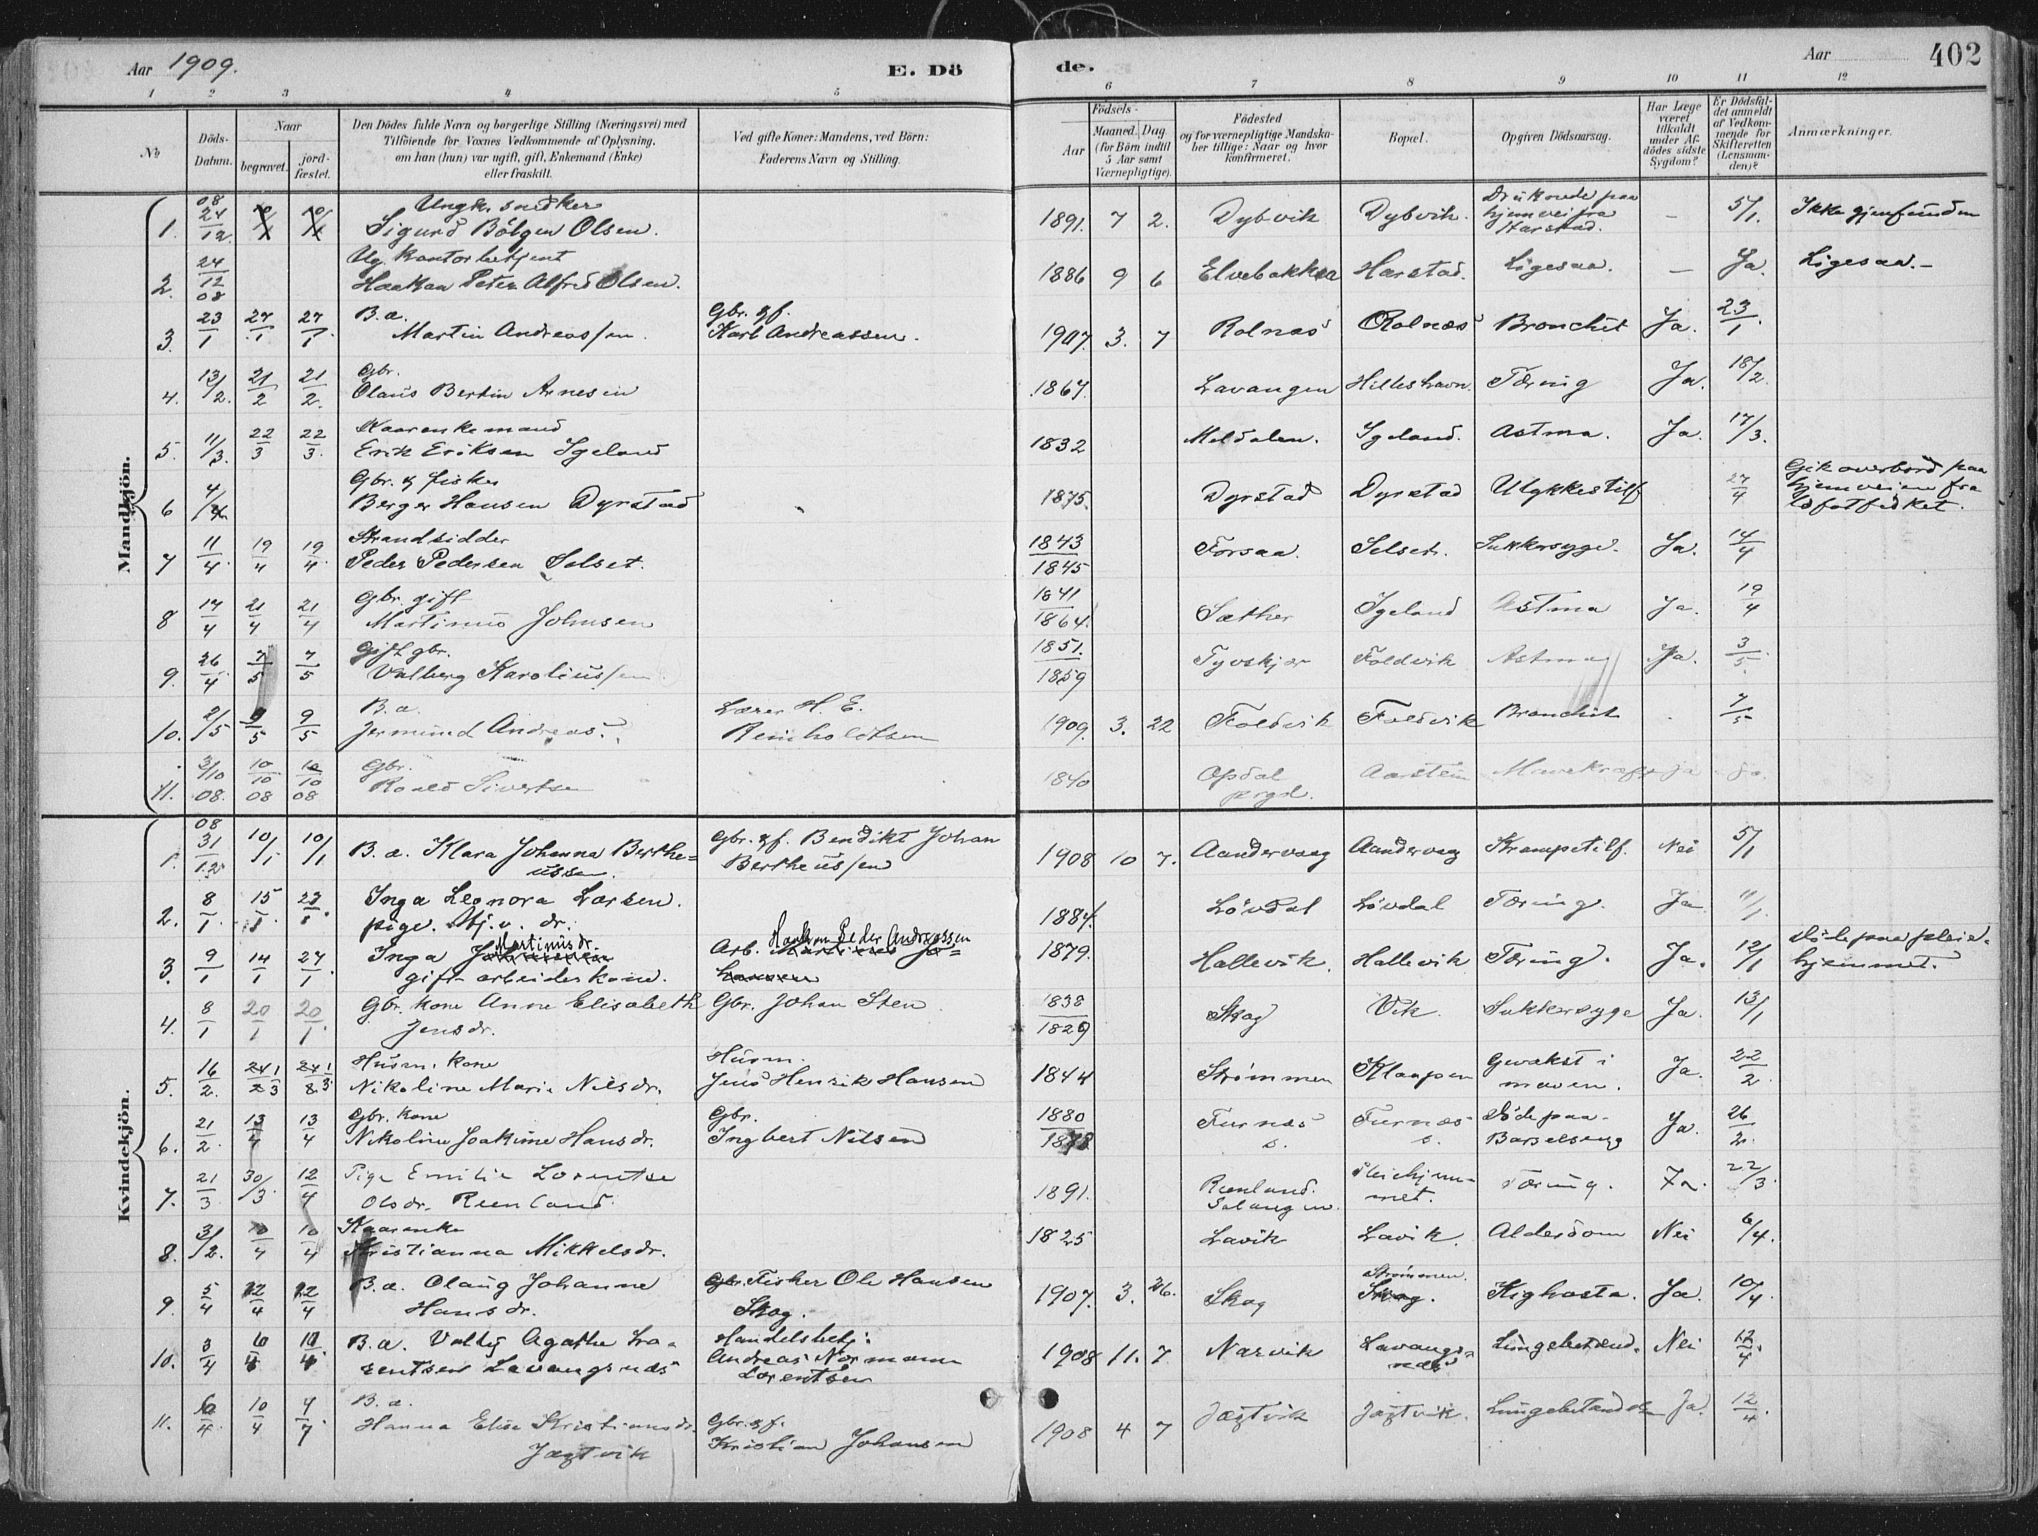 Aar 1909. E. Dö de. Aar 402
1 2 3 4 5 6 7 8 9 10 11 12
No
Döds-Datum.
Naar
begravet.
jord-fæstet.
Den Dödes fulde Navn og borgerlige Stilling (Næringsvei) med
Tilföiende for Voxnes Vedkommende af Oplysning,
om han (hun) var ugift, gift, Enkemand (Enke)
eller fraskilt.
Ved gifte Koner: Mandens, ved Börn:
Faderens Navn og Stilling.
Födsels-
Aar
Maaned. Dag
(for Börn indtil
5 Aar samt
Værnepligtige).
Födested
og for værnepligtige Mandska-
ber tillige: Naar og hvor
konfirmeret.
Bopæl.
Opgiven Dödsaarsag.
Har Læge
været
tilkaldt
under Af-
dödes sidste
Sygdom?
Er Dödsfal-
det anmeldt
af Vedkom-
mende for
Skifteretten
(Lensman-
den)?
Anmærkninger.
Mandkjön.
1. 08 24/12 Ungk. snedker
Sigurd Bölgen Olsen. 1891. 7 2. Dybvik Dybvik. Druknede paa hjemvei fra Harstad. — 5/1. Ikke gjenfunden
2. 24/12 08 Ug. Kontorbetjent
Haakon Peter Alfred Olsen. 1886 9 6 Elvebakken Harstad. Ligesaa. — Ja. Ligesaa.—
3. 23/1 27/1 27/1 B.a.
Martin Andreassen Gbr. gf.
Karl Andreassen. 1907. 3. 7 Rolnæs Rolnæs Bronchit Ja. 23/1.
4. 13/2. 21/2 21/2. Gbr.
Olaus Bertin Arnesen 1867. Lavangen Hilleshavn. Tæring Ja. 18/2.
5. 11/3. 22/3 22/3. Kaarenkemand
Erik Eriksen Igeland 1832 Meldalen. Igeland. Astma. Ja. 17/3.
6 4/4 Gbr. & fisker
Berger Hansen Dyrstad 1875. Dyrstad Dyrstad Ulykkestilf 27/4 Gik overbord paa
hjemveien fra
lofotfisket.
7 11/4 19/4 19/4. Strandsidder
Peder Pedersen Selset. 1843
1845 Forsaa. Selset. Sukkersyge. Ja. 14/4
8 17/4 21/4 21/4 Gbr. gift
Martinus Johnsen 1841
1864. Sæther Igeland Astma Ja. 19/4
9. 26/4 7/5 7/5 Gift gbr.
Valberg Karoliussen 1851.
1859 Tyvskjær Foldvik Astma Ja. 3/5.
10. 2/5 9/5 9/5 B.a.
Jermund Andreas. Lærer H. E.
Reinholdtsen 1909. 3. 22 Foldvik Foldvik Bronchit 7/5
11. 3/10 08. 10/10 08 10/10 08 Gbr.
Roald Sivertsen 1840 Opdal
prgd. Aarstein Mavekræft Ja Ja.
Kvindekjön.
1. 08 31/12 10/1 10/1 B.a. Klara Johanna Berthe=
ussen. Gbr. gf. Bendikt Johan
Bertheussen 1908 10 7. Aandervaag Aandervag Krampetilf. Nei 5/1
2. 8/1. 15/1 27/1. Inga Leonora Larsen.
pige. Stj. v. dr. 1884. Lövdal Lövdal Tæring. Ja 11/1.
3. 9/1 14/1 27/1. Inga Martinusdr.
gift arbeiderkone. Arb. Haakon Peder Andreassen 1879. Hallevik. Hallevik Tæring. Ja. 12/1 Döde paa pleie-
hjemmet.
4. 8/1 20/1 20/1. Gbr. kone Anne Elisabeth
Jensdr. Gbr. Johan Sten 1838
1829 Skog Vik. Sukkersyge Ja. 13/1
5. 16/2. 1/3 1/3 Husm. kone
Nikoline Marie Nilsdr. Husm.
Jens Henrik Hansen 1844 Strömmen Klaapen Gevækst i
maven. Ja. 22/2.
6. 21/2. 13/4 13/4 Gbr. kone
Nikoline Joakime Hansdr. Gbr.
Ingbert Nilsen 1880
1878 Furnæs Furnæs Döde paa
Barselseng Ja. 26/2.
7. 21/3 30/3 12/4 Pige Emilie Lorentse
Olsdr. Reenland 1891. Reenland.
Salangen. Pleiehjem-
met. Tæring. Ja. 22/3.
8. 3/2. 10/4 10/4 Kaarenke
Kristianna Mikkelsdr. 1825 Lavik Lavik. Alderdom Nei 6/4.
9. 5/4 12/4 12/4 B.a. Olaug Johanne
Hansdr. Gbr. Fisker Ole Hansen
Skog. 1907. 3. 26. Skog Strömmen.
Skog. Kighosta. Ja. 10/4
10. 3/4 6/4 11/4. B.a. Valby Agathe Lo-
rentsen Lavangsnæs Handelsbetj.
Andreas Normann
Lorentsen 1908 11. 7. Narvik Lavangs-
næs Lungebetænd. Nei 12/4.
11. 6/4. 10/4 4/7 B.a.
Hanna Elise Kristiansdr.
Jægtvik Gbr. gf.
Kristian Johansen 1908 4 7 Jægtvik Jægtvik. Lungebetændelse Ja. 12/4.